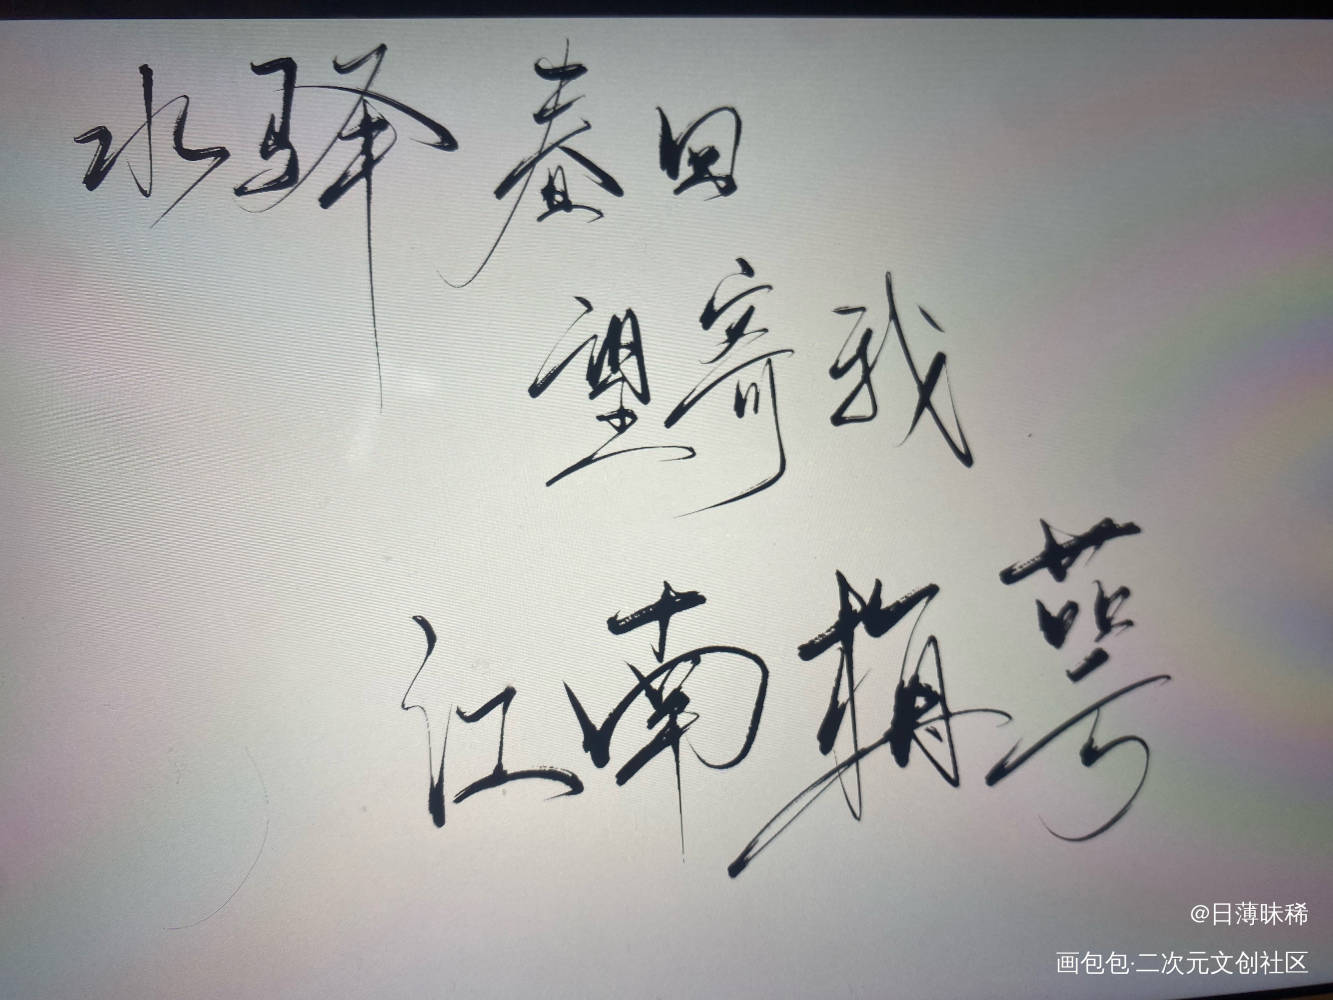 水驿春回
望寄我
江南梅萼
@日薄昧稀
画包包·二次元文创社区